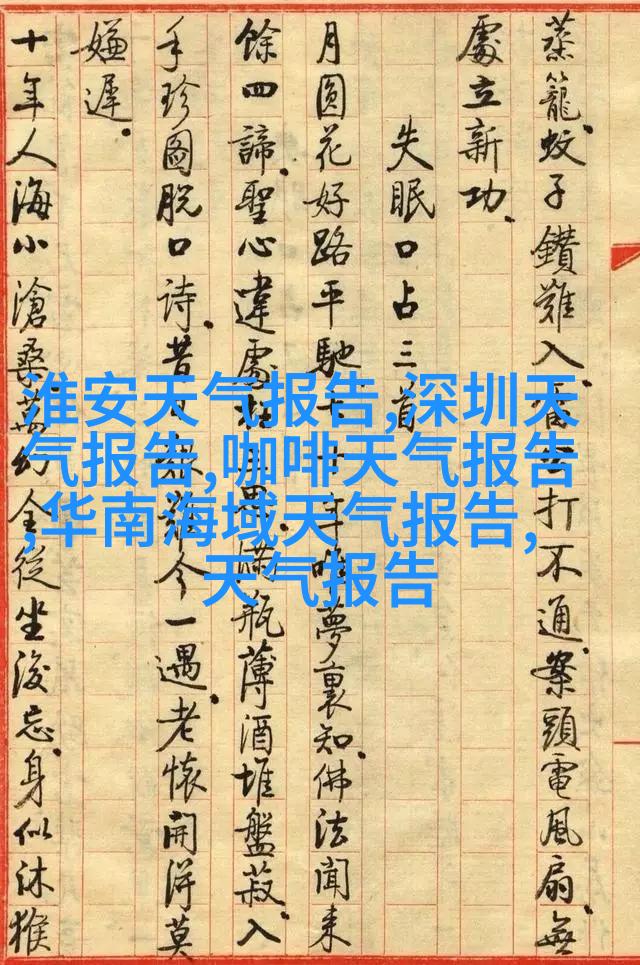 蒸籠蚊子鑽難入.打不通.案頭電風扇.無
處立新功.
失眠口占三首
月圓花好路平馳年唯夢裏知.佛法聞來
餘四諦.聖心違處滿瓶薄酒堆盤菽.入
手珍圖脫口詩.昔誰今一遇.老懷開得莫
嫌遲.
十年人海小滄桑萬幻全從坐後忘.身似沐猴
淮安天气报告,深圳天
气报告,咖啡天气报告
,华南海域天气报告,
天气报告